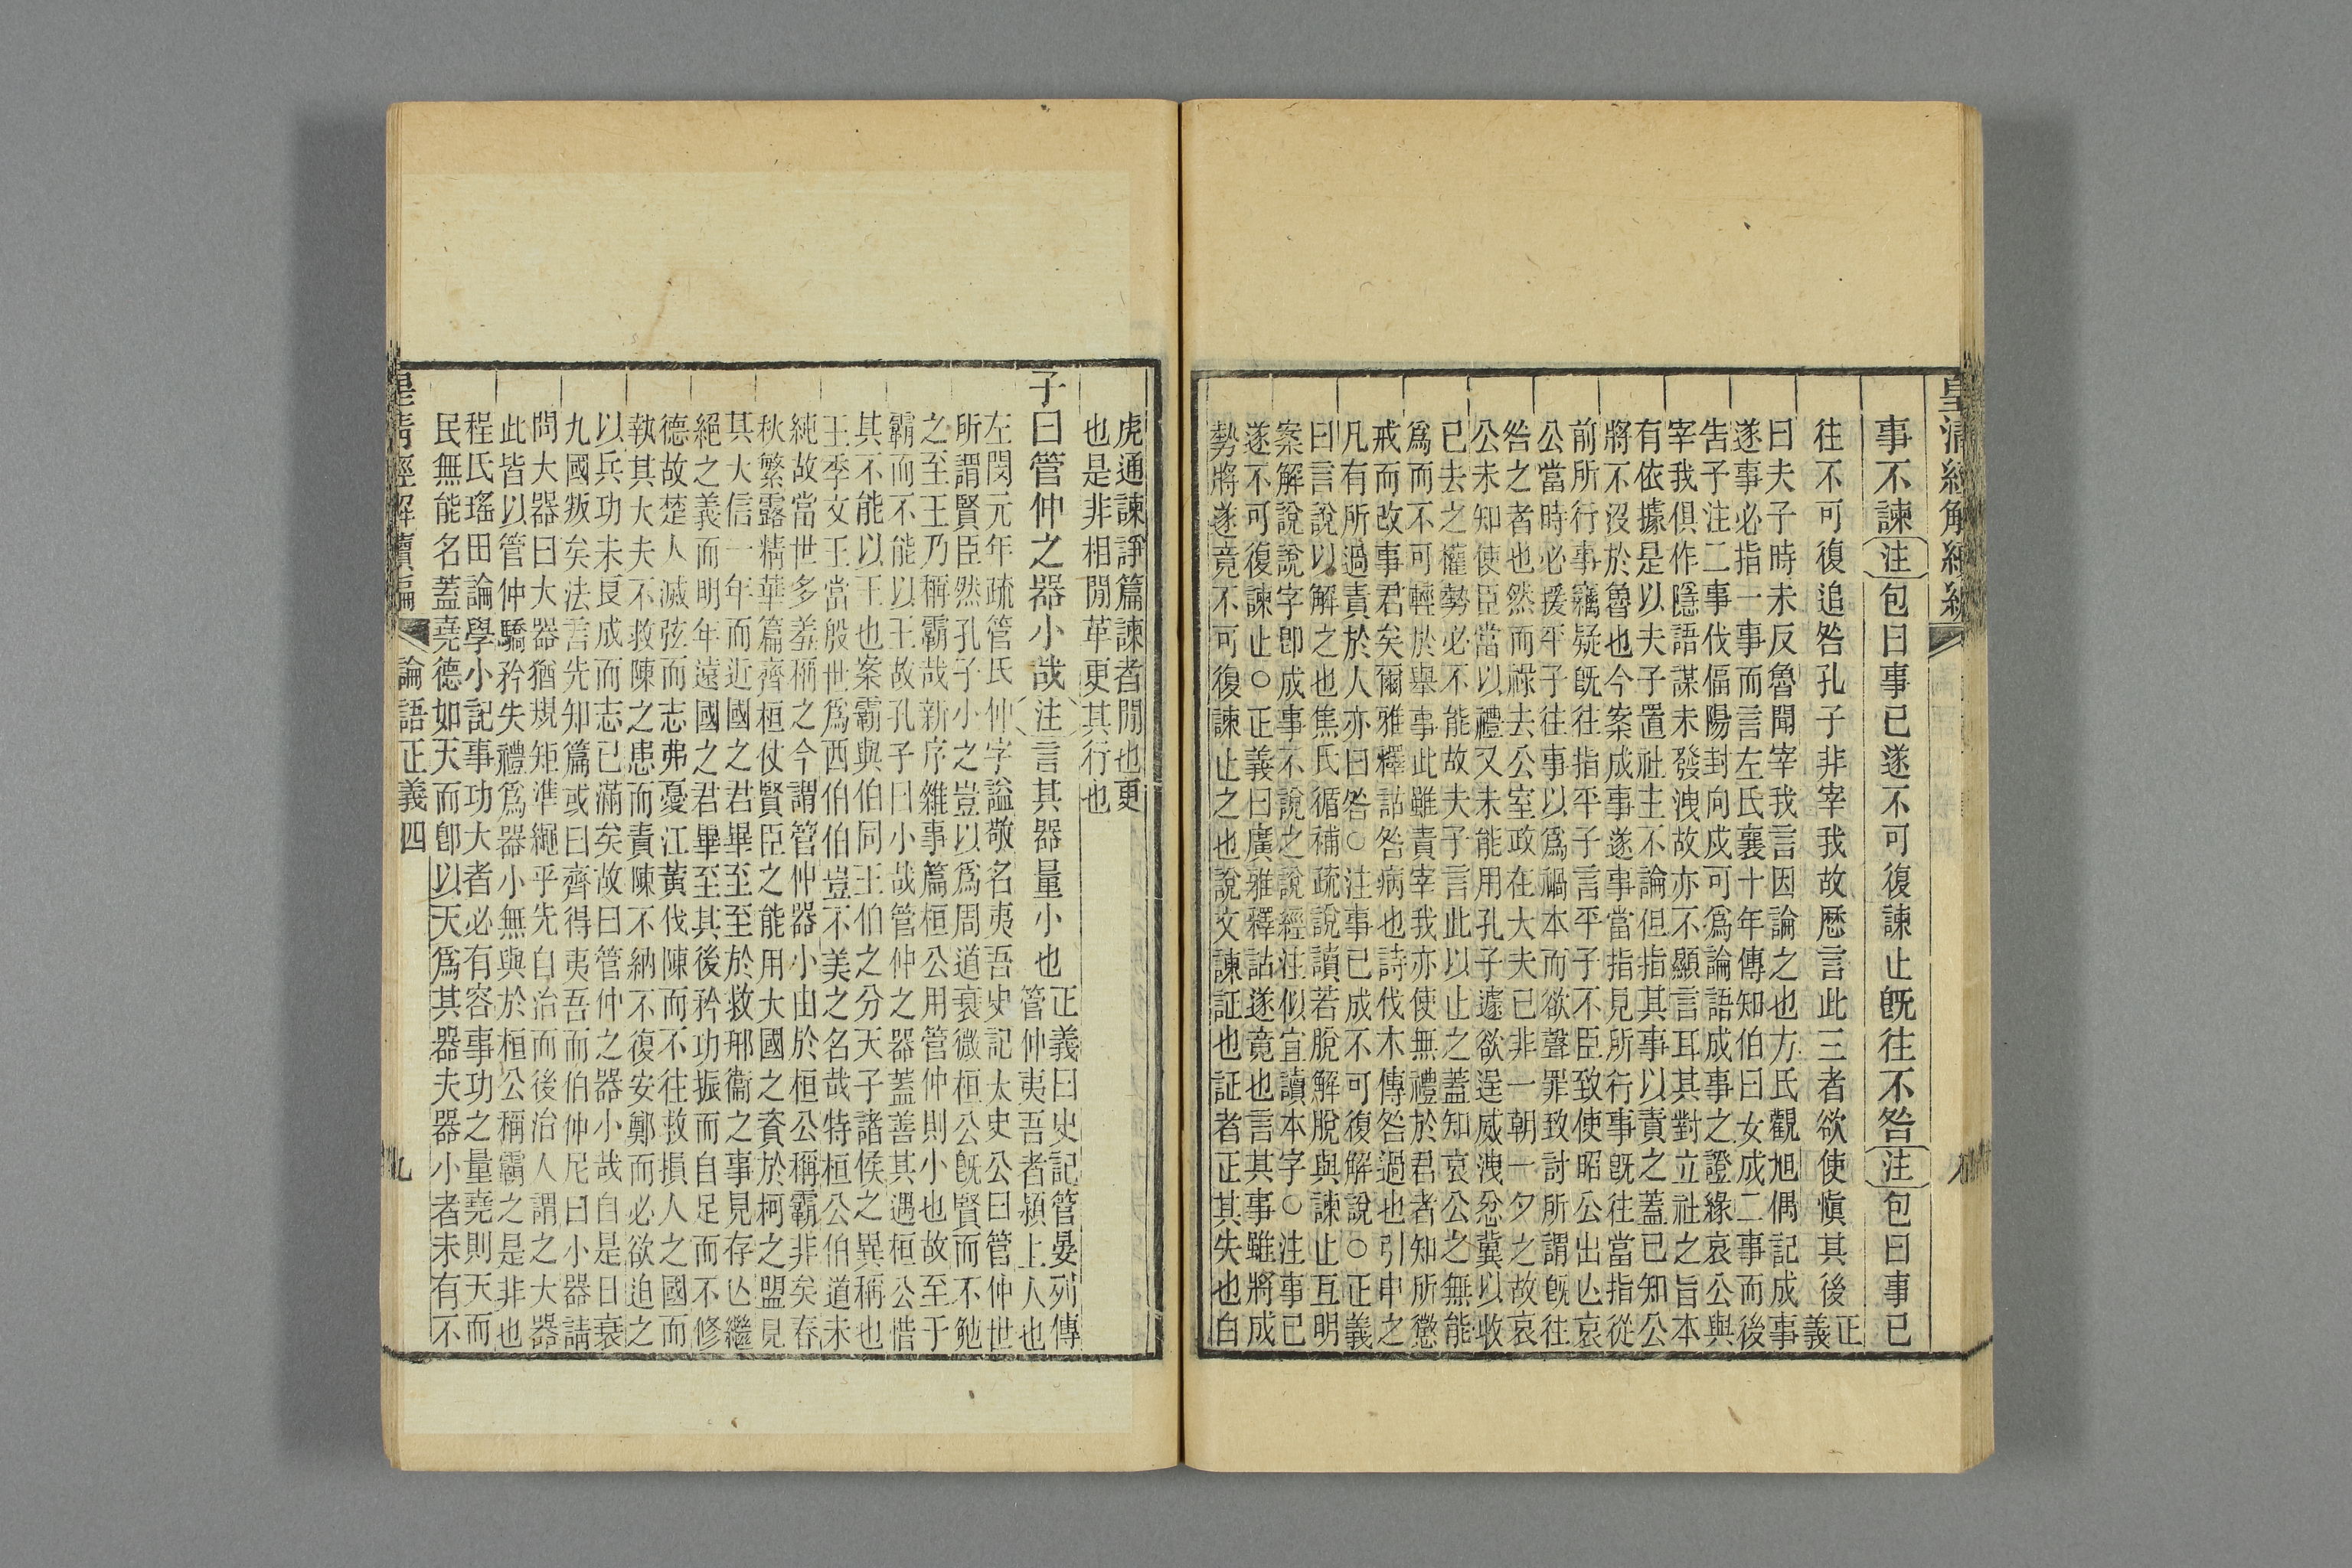 皇清經解續編
事不諫注包曰事已遂不可復諫止旣往不咎注包曰事已
往不可復追咎孔子非宰我故歷言此三者欲使愼其後正義
曰夫子時未反魯聞宰我言因論之也方氏觀旭偶記成事
遂事必指一事而言左氏襄十年傳知伯曰女成二事而後
告子注二事伐偪陽封向戍可爲論語成事之證緣哀公與
宰我俱作隱語謀未發洩故亦不顯言耳其對立社之旨本
有依據是以夫子置社主不論但指其事以責之蓋已知公
將不沒於魯也今案成事遂事當指見所行事旣往當指從
前所行事竊疑旣往指平子言平子不臣致使昭公出亾哀
公當時必援平子往事以爲禍本而欲聲罪致討所謂旣往
咎之者也然而祿去公室政在大夫已非一朝一夕之故哀
公未知使臣當以禮又未能用孔子遽欲逞威洩忿冀以收
已去之權勢必不能故夫子言此以止之蓋知哀公之無能
爲而不可輕於舉事此雖責宰我亦使無禮於君者知所懲
戒而改事君矣爾雅釋詁咎病也詩伐木傳咎過也引申之
凡有所過責於人亦曰咎○注事已成不可復解說○正義
曰言說以解之也焦氏循補疏說讀若脫解脫與諫止互明
案解說說字卽成事不說之說經注似宜讀本字○注事已
遂不可復諫止○正義曰廣雅釋詁遂竟也言其事雖將成
勢將遂竟不可復諫止之也說文諫証也証者正其失也白
虎通諫諍篇諫者閒也更
也是非相閒革更其行也
子曰管仲之器小哉注言其器量小也正義曰史記管晏列傳
管仲夷吾者潁上人也
左閔元年疏管氏仲字諡敬名夷吾史記太史公曰管仲世
所謂賢臣然孔子小之豈以爲周道衰微桓公旣賢而不勉
之至王乃稱霸哉新序雜事篇桓公用管仲則小也故至于
霸而不能以王故孔子曰小哉管仲之器蓋善其遇桓公惜
其不能以王也案霸與伯同王伯之分天子諸侯之異稱也
王季文王當殷世爲西伯伯豈不美之名哉特桓公伯道未
純故當世多羞稱之今謂管仲器小由於桓公稱霸非矣春
秋繁露精華篇齊桓仗賢臣之能用大國之資於柯之盟見
其大信一年而近國之君畢至至於救邢衞之事見存亾繼
絕之義而明年遠國之君畢至其後矜功振而自足而不修
德故楚人滅弦而志弗憂江黃伐陳而不往救損人之國而
執其大夫不救陳之患而責陳不納不復安鄭而必欲迫之
以兵功未良成而志已滿矣故曰管仲之器小哉自是日衰
九國叛矣法言先知篇或曰齊得夷吾而伯仲尼曰小器請
問大器曰大器猶規矩準繩乎先自治而後治人謂之大器
此皆以管仲驕矜失禮爲器小無與於桓公稱霸之是非也
程氏瑤田論學小記事功大者必有容事功之量堯則天而
民無能名蓋堯德如天而卽以天爲其器夫器小者未有不
皇清經解續編 論語正義四 九